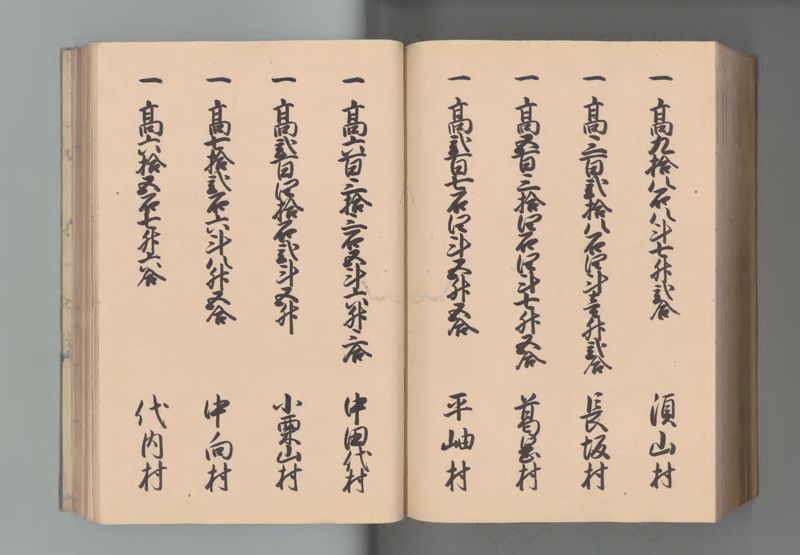 一 高九拾八石八斗七升弐合 須山村
一 高三百弐拾八石四斗壱升弐合 長坂村
一 高五百三拾四石四斗七升五合 葛岳村
一 高弐百七石四斗五升五合 平岫村
一 高六百三拾三石五斗六升二合 中田代村
一 高弐百四拾石弐斗五升 小栗山村
一 高七拾弐石六斗八升五合 中向村
一 高六拾五石七升六合 代内村